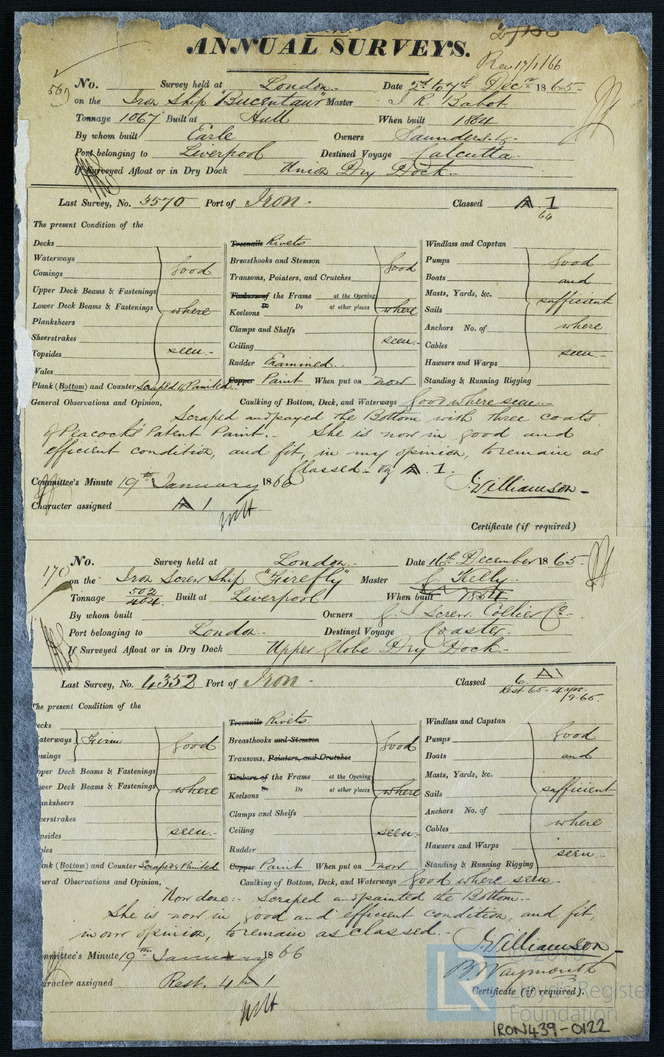 ANNUAL SURVEYS.
Rec 17/1/66
569 No. Survey held at London Date 5th to 7th Decr 1865.
on the Iron Ship "Bucentaur" Master J. R. Tabot
Tonnage 1067 Built at Hull When built 1864
By whom built Earle Owners Saunders & Co
Port belonging to Liverpool Destined Voyage Calcutta
If Surveyed Afloat or in Dry Dock Union Dry Dock.
Last Survey, No. 3570 Port of Iron. Classed A 1
64
The present Condition of the
Decks
Waterways
Comings
Upper Deck Beams & Fastenings
Lower Deck Beams & Fastenings
Planksheers
Sheerstrakes
Topsides
Wales
good
where
seen.
Plank (Bottom) and Counter Scraped & Painted
Treenails Rivets
Breasthooks and Stemson
Transoms, Pointers, and Crutches
Timbers of the Frame at the Opening
Keelsons Do at other places
Clamps and Shelfs
Ceiling
Rudder Examined.
good
where
seen.
Copper Paint When put on now
Windlass and Capstan
Pumps
Boats
Masts, Yards, &c.
Sails
Anchors No. of
Cables
Hawsers and Warps
Standing & Running Rigging
good
and
sufficient
where
seen.
General Observations and Opinion, Caulking of Bottom, Deck, and Waterways Good where seen.
Scraped and payed the Bottom with three coats
of Peacock's Patent Paint. She is now in good and
efficient condition, and fit, in my opinion, to remain as
Classed A 1.
Committee's Minute 19th January 1866
J Williamson
Character assigned A 1
Certificate (if required)
170 No. Survey held at London. Date 16th December 1865.
on the Iron Screw Ship "Firefly" Master J. Kelly
Tonnage 502 Built at Liverpool When built 1854
464
By whom built Owners J. S. Screw Collier Co.
Port belonging to London. Destined Voyage Coaster.
If Surveyed Afloat or in Dry Dock Upper Globe Dry Dock.
Last Survey, No. 4352 Port of Iron. Classed 6 A 1
Rest. 65 - 4 yrs.
9.65.
The present Condition of the
ecks
aterways
omings
pper Deck Beams & Fastenings
wer Deck Beams & Fastenings
anksheers
eerstrakes
psides
les
good
where
seen.
nk (Bottom) and Counter Scraped & Painted
Treenails Rivets
Breasthooks and Stemson
Transoms, Pointers, and Crutches
Timbers of the Frame at the Opening
Keelsons Do at other places
Clamps and Shelfs
Ceiling
Rudder
good
where
seen.
Copper Paint When put on now
Windlass and Capstan
Pumps
Boats
Masts, Yards, &c.
Sails
Anchors No. of
Cables
Hawsers and Warps
Standing & Running Rigging
good
and
sufficient
where
seen.
eral Observations and Opinion, Caulking of Bottom, Deck, and Waterways good where seen.
Now done:- Scraped and painted the Bottom.
She is now in good and efficient condition, and fit,
in our opinion, to remain as classed.
J Williamson
mmittee's Minute 19th January 1866
B. Waymouth
aracter assigned Rest. 4 A 1
Certificate (if required).
LR
Register
Foundation
IRON439-0122